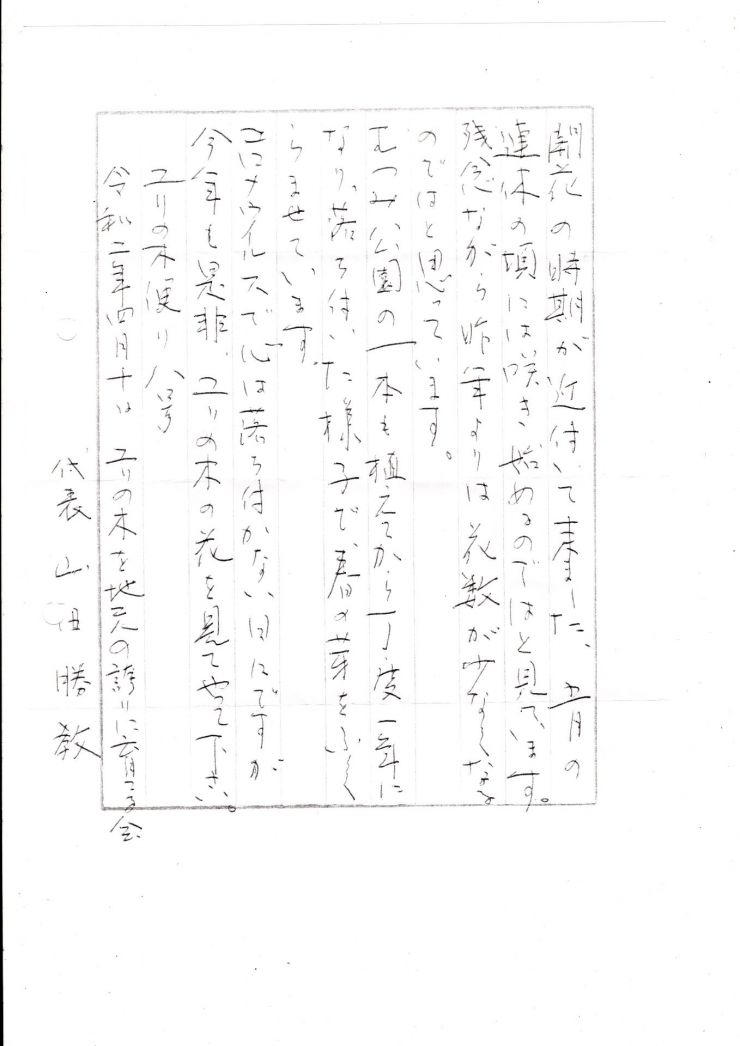 開花の時期が近付いて来ました、五月の
連休の頃には咲き始めるのではと見ています。
残念ながら昨年よりは花数が少なくなる
のではと思っています。
むつみ公園の一本も植えてから丁度一年に
なり、落ち付いた様子で、春の芽をふく
らませています。
コロナウイルスで心は落ち付かない日々ですが
今年も是非、ユリの木の花を見てやって下さい。
ユリの木便り 八号
令和二年四月十日 ユリの木を地元の誇りに育てる会
代表 山田勝教